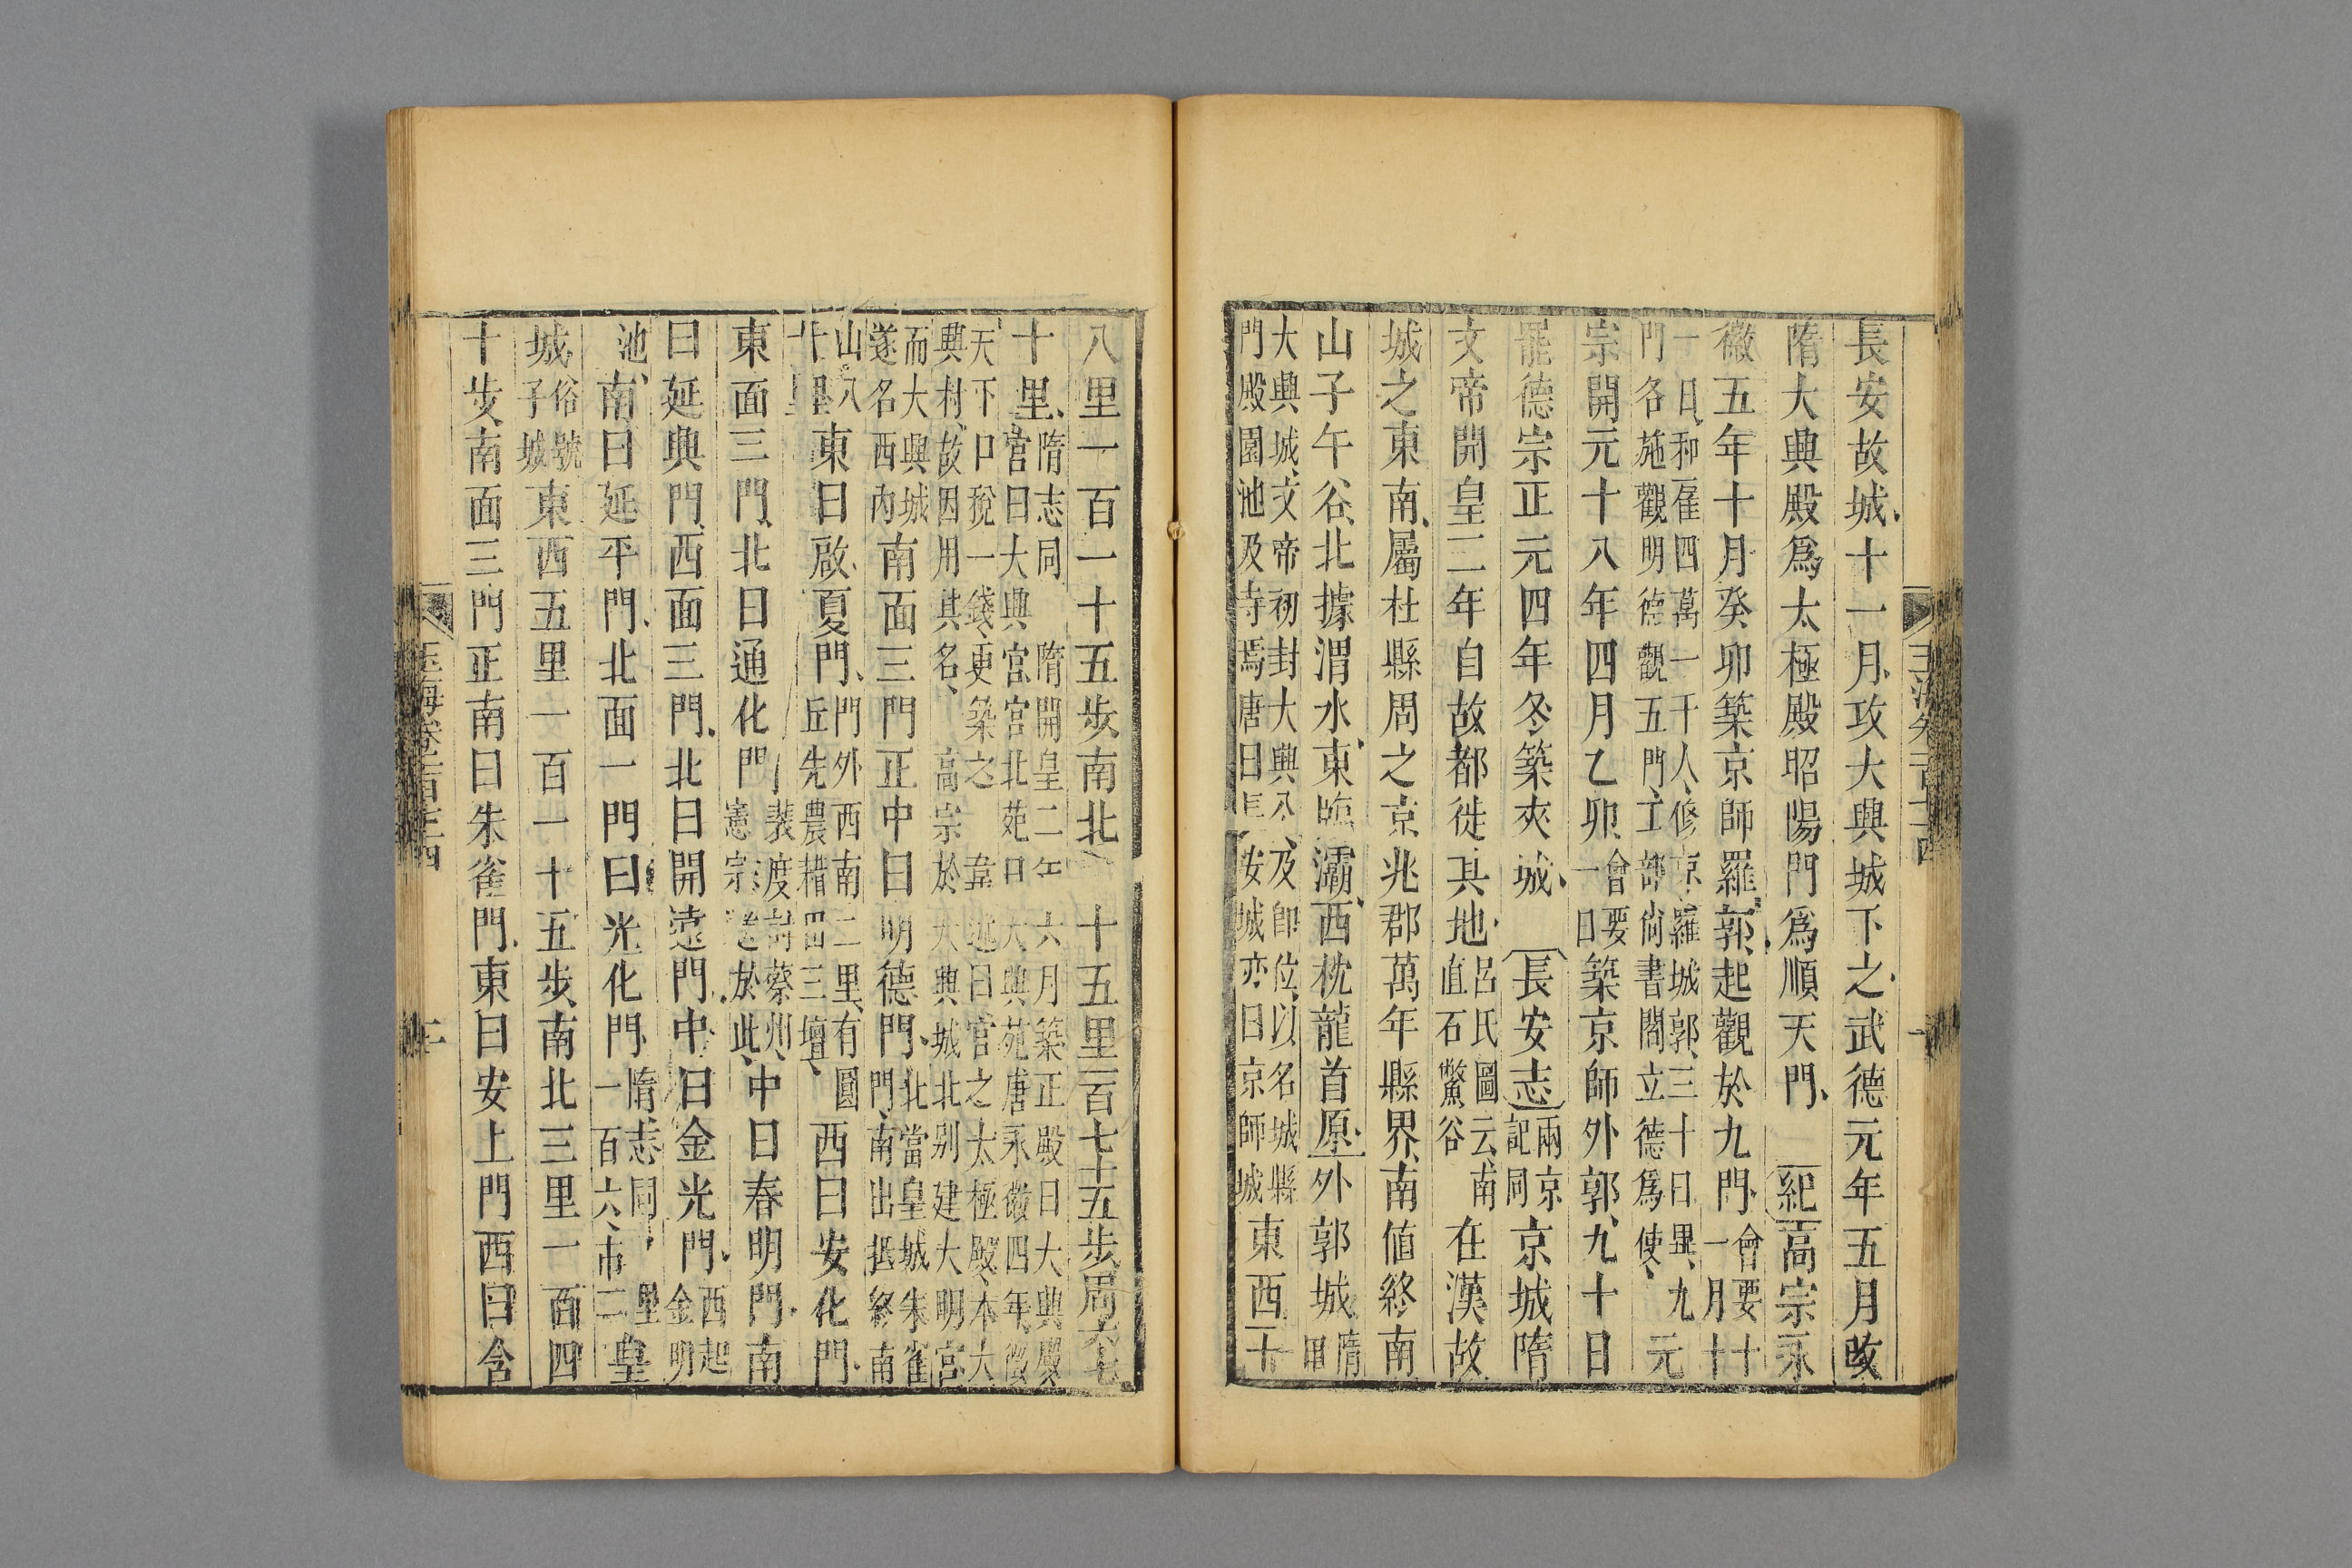 長安故城十一月攻大興城下之武德元年五月改
隋大興殿爲太極殿昭陽門爲順天門紀高宗永
徽五年十月癸卯築京師羅郭起觀於九門會要十一月十
一日和雇四萬一千人修京羅城郭三十日畢九
門各施觀明德觀五門工部尚書閻立德爲使元
宗開元十八年四月乙卯會要一日築京師外郭九十日
罷德宗正元四年冬築夾城長安志兩京記同京城隋
文帝開皇二年自故都徙其地呂氏圖云南直石鱉谷在漢故
城之東南屬杜縣周之京兆郡萬年縣界南値終南
山子午谷北據渭水東臨灞西枕龍首原外郭城隋曰
大興城文帝初封大興公及卽位以名城縣
門殿園池及寺焉唐曰長安城亦曰京師城東西一十
八里一百一十五步南北一十五里一百七十五步周六七
十里隋志同隋開皇二年六月築正殿曰大興殿
宮曰大興宮宮北苑曰大興苑唐永徽四年徵
天下口稅一錢更築之韋述曰宮之太極殿本大
興村故因用其名高宗於大興城北别建大明宮
而大興城北當皇城朱雀
遂名西內南面三門正中曰明德門門南出抵終南
山八十里東曰啟夏門門外西南二里有圜丘先農耤田三壇西曰安化門
東面三門北曰通化門裴度討蔡州憲宗送於此中曰春明門南
曰延興門西面三門北曰開遠門中曰金光門西起金明
池南曰延平門北面一門曰光化門隋志同里一百六市二皇
城俗號子城東西五里一百一十五步南北三里一百四
十步南面三門正南曰朱雀門東曰安上門西曰含
玉海卷一百七十四